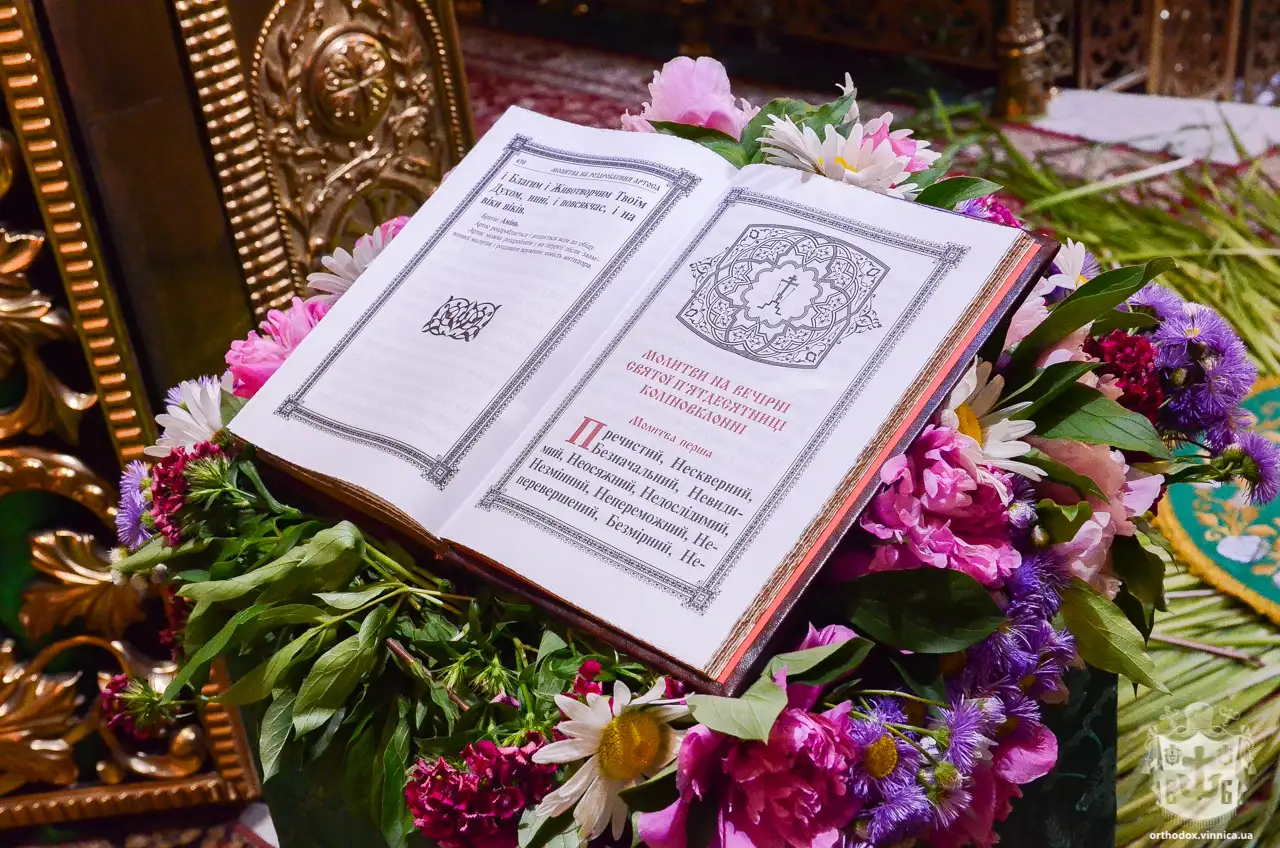 438
МОЛИТВА НА РОЗДРОБЛЕННЯ АРТОСА
і Благим і Животворчим Твоїм
Духом, нині, і повсякчас, і на
віки віків.
Кінець: Амінь.
МОЛИТВИ НА ВЕЧІРНІ
СВЯТОЇ П'ЯТДЕСЯТНИЦІ
КОЛІНОВКЛОННІ
Молитва перша
Пречистий, Нескверний,
Безначальний, Невиди-
мий, Неосяжний, Недослідимий,
Незмінний, Непереможний, Не-
перевершений, Безмірний, Не-
orthodox.vinnica.ua